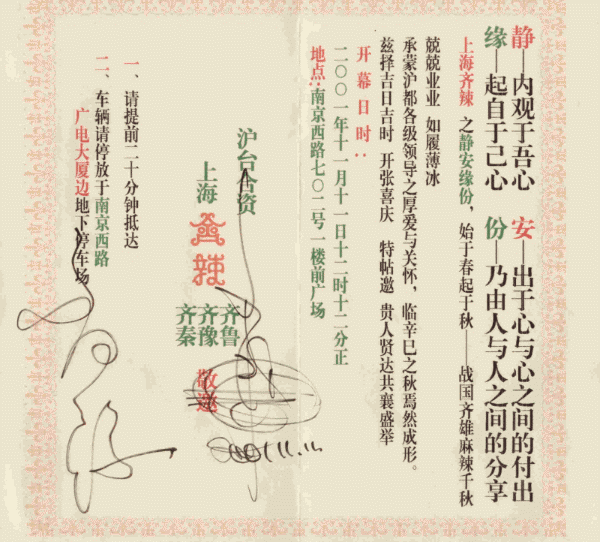 静——内观于吾心 安——出于心与心之间的付出
缘——起自于己心 份——乃由人与人之间的分享
上海齐辣 之静安缘份，始于春起于秋——战国齐雄麻辣千秋
兢兢业业 如履薄冰
承蒙沪都各级领导之厚爱与关怀，临辛巳之秋焉然成形。
兹择吉日吉时 开张喜庆 特帖邀 贵人贤达共襄盛举
开幕日时：
二〇〇一年十一月十一日十二时十二分正
地点：南京西路七〇二号一楼前广场
沪台合资
上海
齐辣
齐鲁
齐豫
齐秦
敬邀
一、请提前二十分钟抵达
二、车辆请停放于南京西路
广电大厦边地下停车场